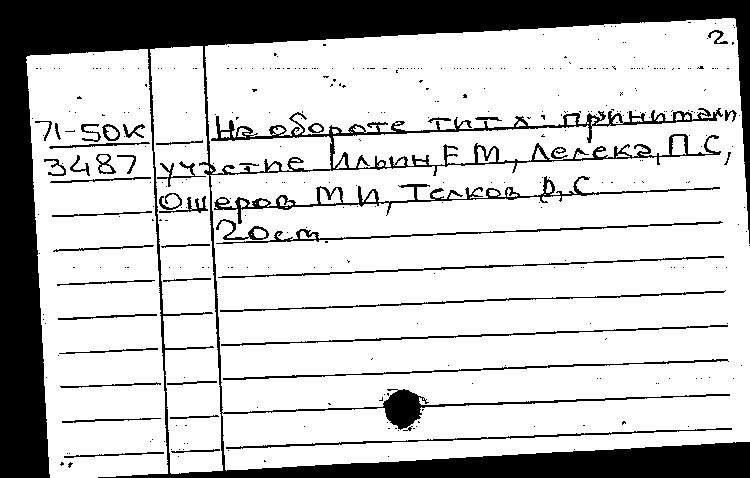 2.
71-50К На обороте тит л: принимали
3487 участие Ильин, Е М, Лелека, П.С,
Ошеров М И, Телков В, С
20 cm.